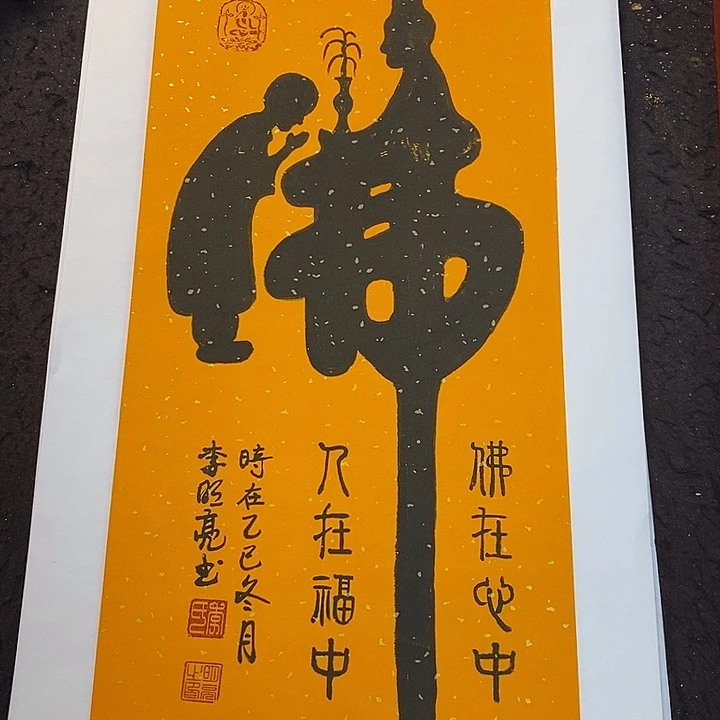 佛
佛在心中
人在福中
時在乙巳冬月
李明亮书
李氏